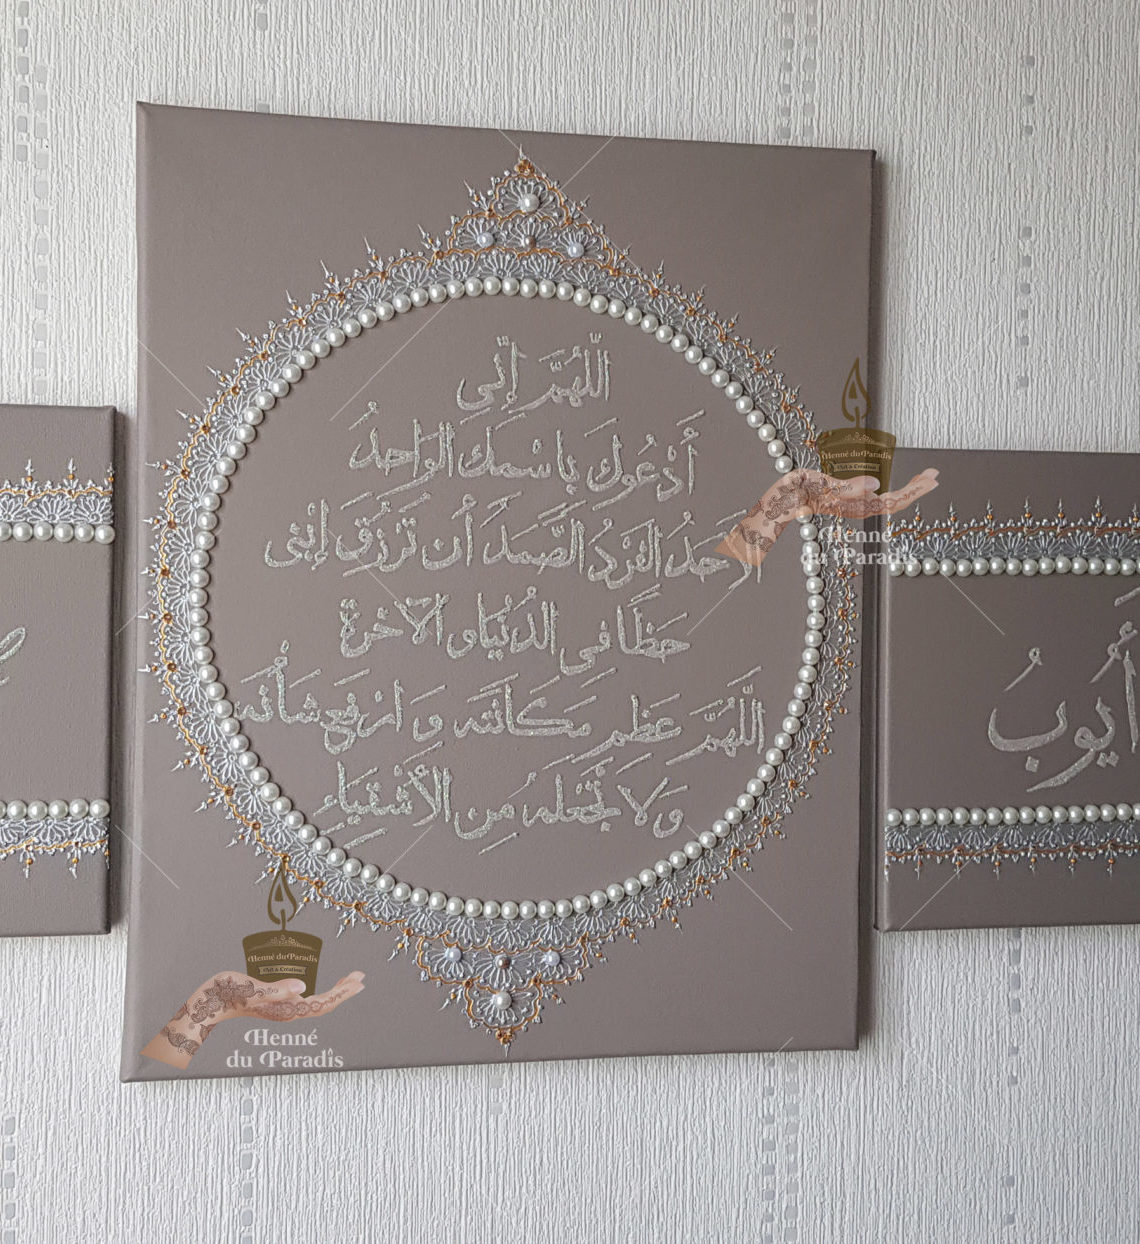 اللّٰهُمَّ إنّي
أَدْعُوكَ بِاسْمِكَ الوَاحِدُ
الأَحَدُ الفَرْدُ الصَّمَدُ أَن تَرْزُقَ إبْنِي
حَظًّا فِي الدُنْيَا و الآخْرَة
اللَّهُمَّ عَظِم مَكَانَتَه وَ ارْفَع شَأْنَه
وَلاَ تَجْعَلهُ مِنَ الأَشْقِيَاءِ
أَيُوبُ
Henné du Paradis
Art & Création
Henné
du Paradis
Henné du Paradis
Art & Création
Henné
du Paradis